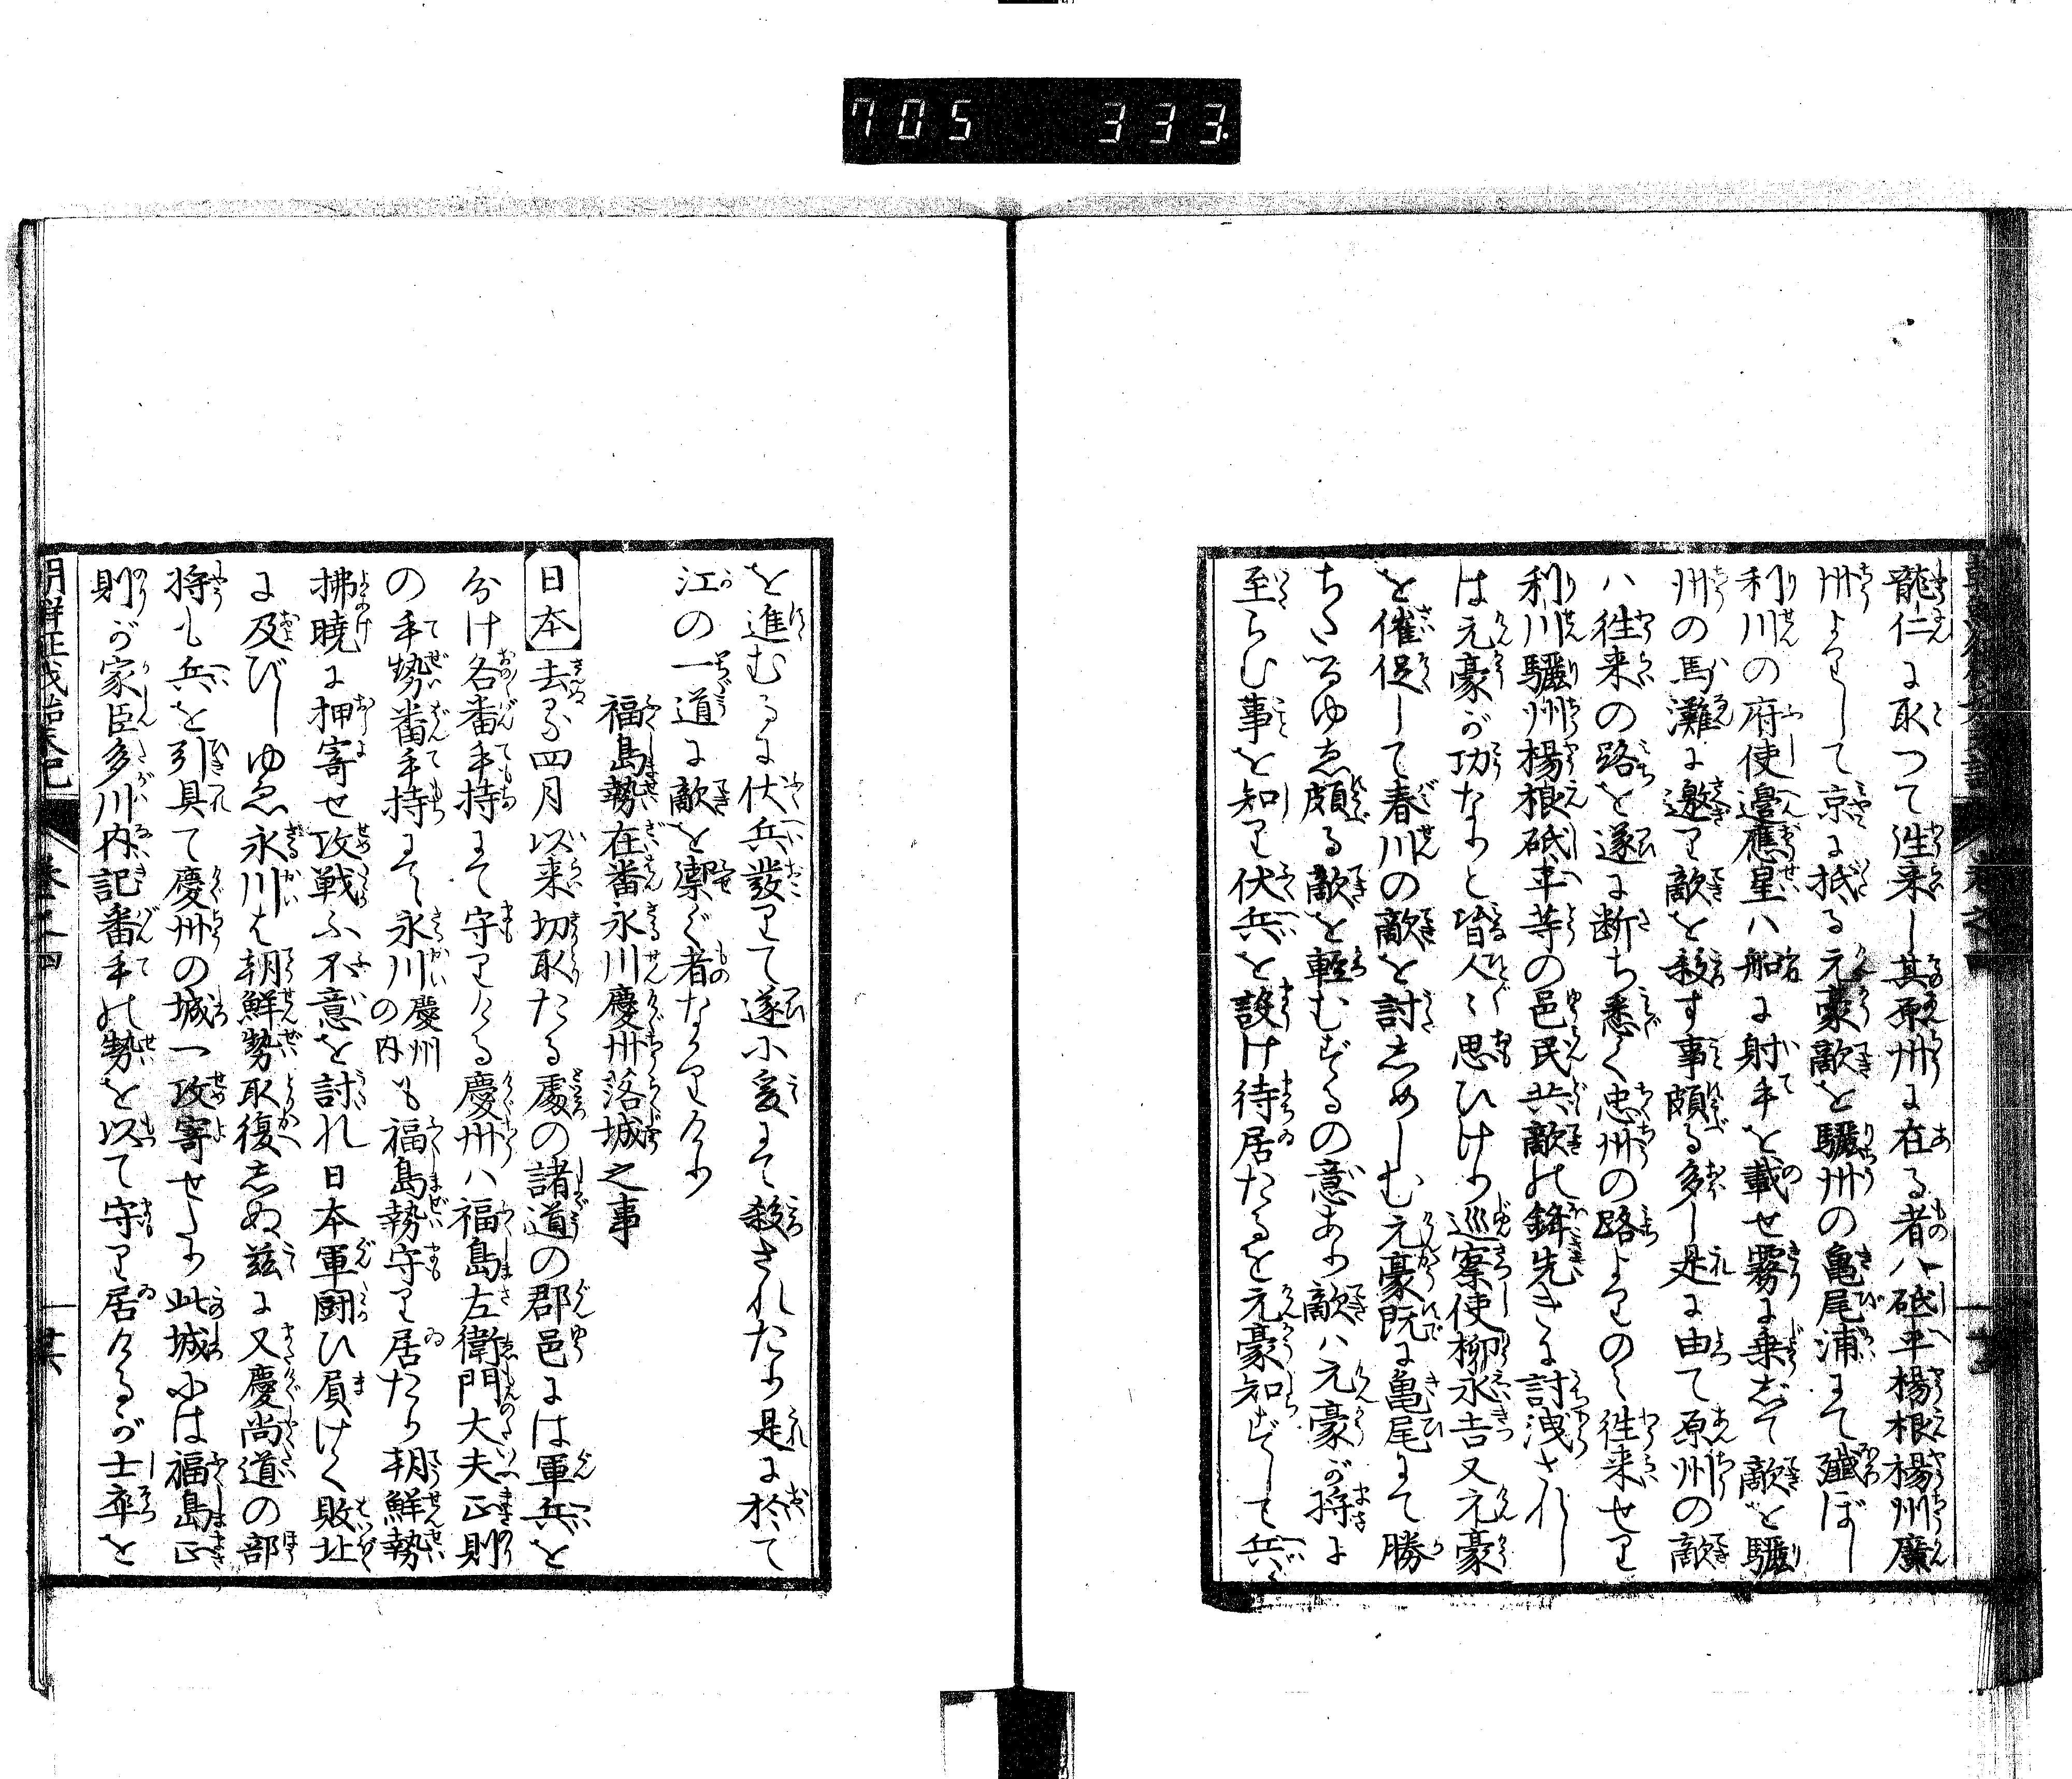 705 333.
龍仁に取つて徃来し其原州に在る者ハ砥平楊根楊州廣
州よりして京に抵る元豪敵を驪州の亀尾浦にて殲ぼし
利川の府使邉應星ハ船に射手を載せ霧に乗じて敵を驪
州の馬灘に邀り敵を殺す事頗る多し是に由て原州の敵
ハ徃来の路を遂に断ち悉く忠州の路よりのミ徃来せり
利川驪州楊根砥平等の邑民共敵の鋒先きに討洩されし
は元豪が功なりと皆人〻思ひけり巡察使柳永吉又元豪
を催促して春川の敵を討しめしむ元豪既に亀尾にて勝
ちたるゆゑ頗る敵を軽むずるの意あり敵ハ元豪が将に
至らむ事を知り伏兵を設け待居たるを元豪知ずして兵
を進むるに伏兵發りて遂に爰にて殺されたり是に於て
江の一道に敵を禦ぐ者なかりけり
福島勢在番永川慶州落城之事
日本 去る四月以来切取たる處の諸道の郡邑には軍兵を
分け各番手持にて守りける慶州ハ福島左衛門大夫正則
の手勢番手持にて永川慶州の内も福島勢守り居たり朝鮮勢
拂曉に押寄せ攻戦ふ不意を討れ日本軍闘ひ負けて敗北
に及びしゆゑ永川を朝鮮勢取復しぬ茲に又慶尚道の部
将も兵を引具て慶州の城へ攻寄せたり此城には福島正
則が家臣多川内記番手の勢を以て守り居けるが士卒を